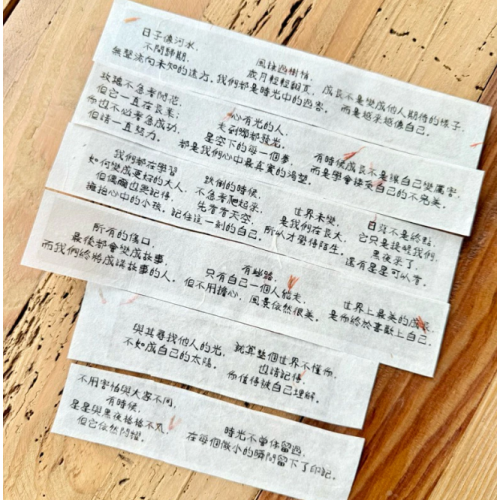 日子像河水,
不問歸期,
無聲流向未知的遠方。
風掠過樹梢,
歲月輕輕翻頁,
我們都是時光中的過客。
成長不是變成他人期待的樣子,
而是越來越像自己。
玫瑰不急著開花,
但它一直在長葉;
你也不必急著成功,
但請一直努力。
心有光的人,
走到哪都發光。
星空下的每一個夢,
都是我們心中最真實的渴望。
有時候成長不是讓自己變厲害,
而是學會接受自己的不完美。
我們都在學習
如何變成更好的大人,
但偶爾也要記得,
擁抱心中的小孩,
跌倒的時候,
不急著爬起來,
先看看天空,
記住這一刻的自己。
世界未變,
是我們在長大,
所以才覺得陌生。
日落不是終點,
它只是提醒我們,
黑夜來了,
還有星星可以看。
所有的傷口,
最後都會變成故事,
而我們終將成講故事的人。
有些路,
只有自己一個人能走,
但不用擔心,風景依然很美。
世界上最美的成長,
是你終於喜歡上自己。
與其尋找他人的光,
不如成自己的太陽。
就算整個世界不懂你,
也請記得,
你值得被自己理解。
不用害怕與大家不同,
有時候,
星星與黑夜格格不入,
但它依然閃耀。
時光不曾停留過,
在每個微小的瞬間留下了印記。